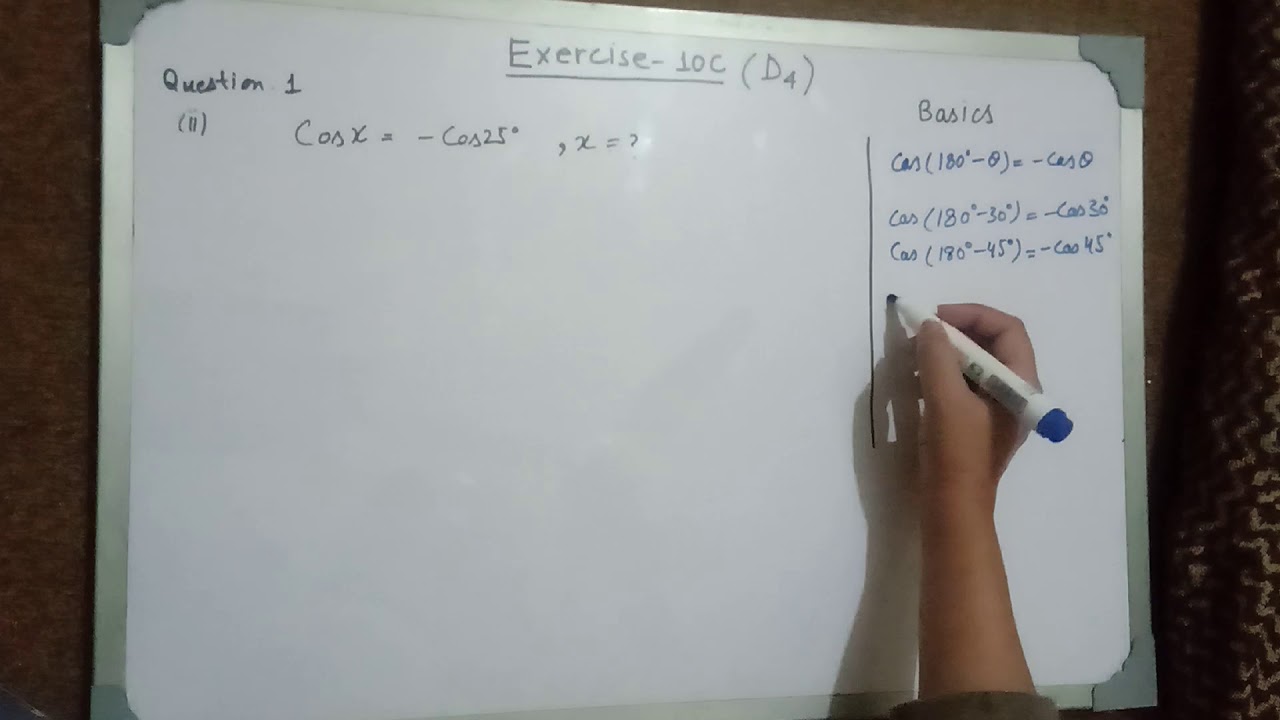 Exercise-10C (D4)
Question 1
(ii) Cosx = -Cos25° , x = ?
Basics
Cos(180°-θ)= -Cosθ
Cos(180°-30°)= -Cos30°
Cos(180°-45°)= -Cos45°